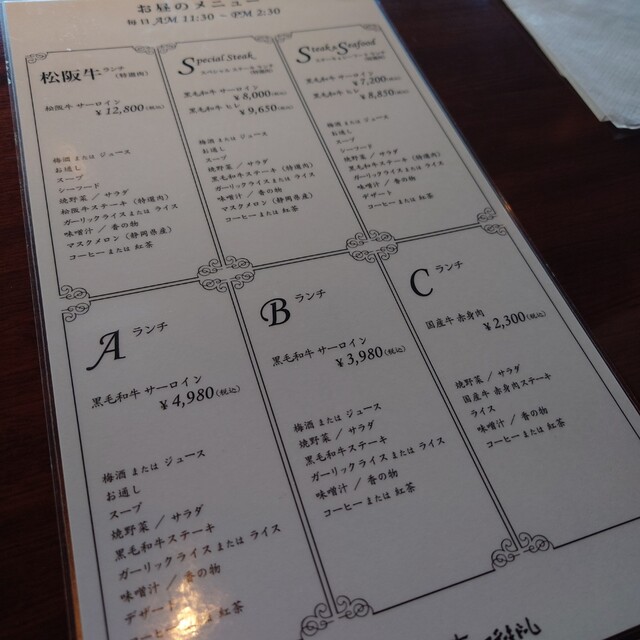 お昼のメニュー
毎日 AM 11:30 ~ PM 2:30
松阪牛ランチ
(特選肉)
松阪牛 サーロイン
¥12,800(税込)
梅酒 または ジュース
お通し
スープ
シーフード
焼野菜 / サラダ
松阪牛ステーキ (特選肉)
ガーリックライス または ライス
味噌汁 / 香の物
マスクメロン (静岡県産)
コーヒー または 紅茶
Special Steak
黒毛和牛 サーロイン
¥8,000(税込)
黒毛和牛 ヒレ
¥9,650(税込)
梅酒 または ジュース
お通し
スープ
焼野菜 / サラダ
黒毛和牛ステーキ (特選肉)
ガーリックライス または ライス
味噌汁 / 香の物
マスクメロン (静岡県産)
コーヒー または 紅茶
Steak & Seafood
黒毛和牛 サーロイン
¥7,200(税込)
黒毛和牛 ヒレ
¥8,850(税込)
梅酒 または ジュース
お通し
スープ
シーフード
焼野菜 / サラダ
黒毛和牛ステーキ (特選肉)
ガーリックライス または ライス
味噌汁 / 香の物
デザート
コーヒー または 紅茶
A ランチ
黒毛和牛 サーロイン
¥4,980(税込)
梅酒 または ジュース
お通し
スープ
焼野菜 / サラダ
黒毛和牛ステーキ
ガーリックライス または ライス
味噌汁 / 香の物
デザート
コーヒー または 紅茶
B ランチ
黒毛和牛 サーロイン
¥3,980(税込)
梅酒 または ジュース
焼野菜 / サラダ
黒毛和牛ステーキ
ガーリックライス または ライス
味噌汁 / 香の物
コーヒー または 紅茶
C ランチ
国産牛 赤身肉
¥2,300(税込)
焼野菜 / サラダ
国産牛 赤身肉ステーキ
ライス
味噌汁 / 香の物
コーヒー または 紅茶